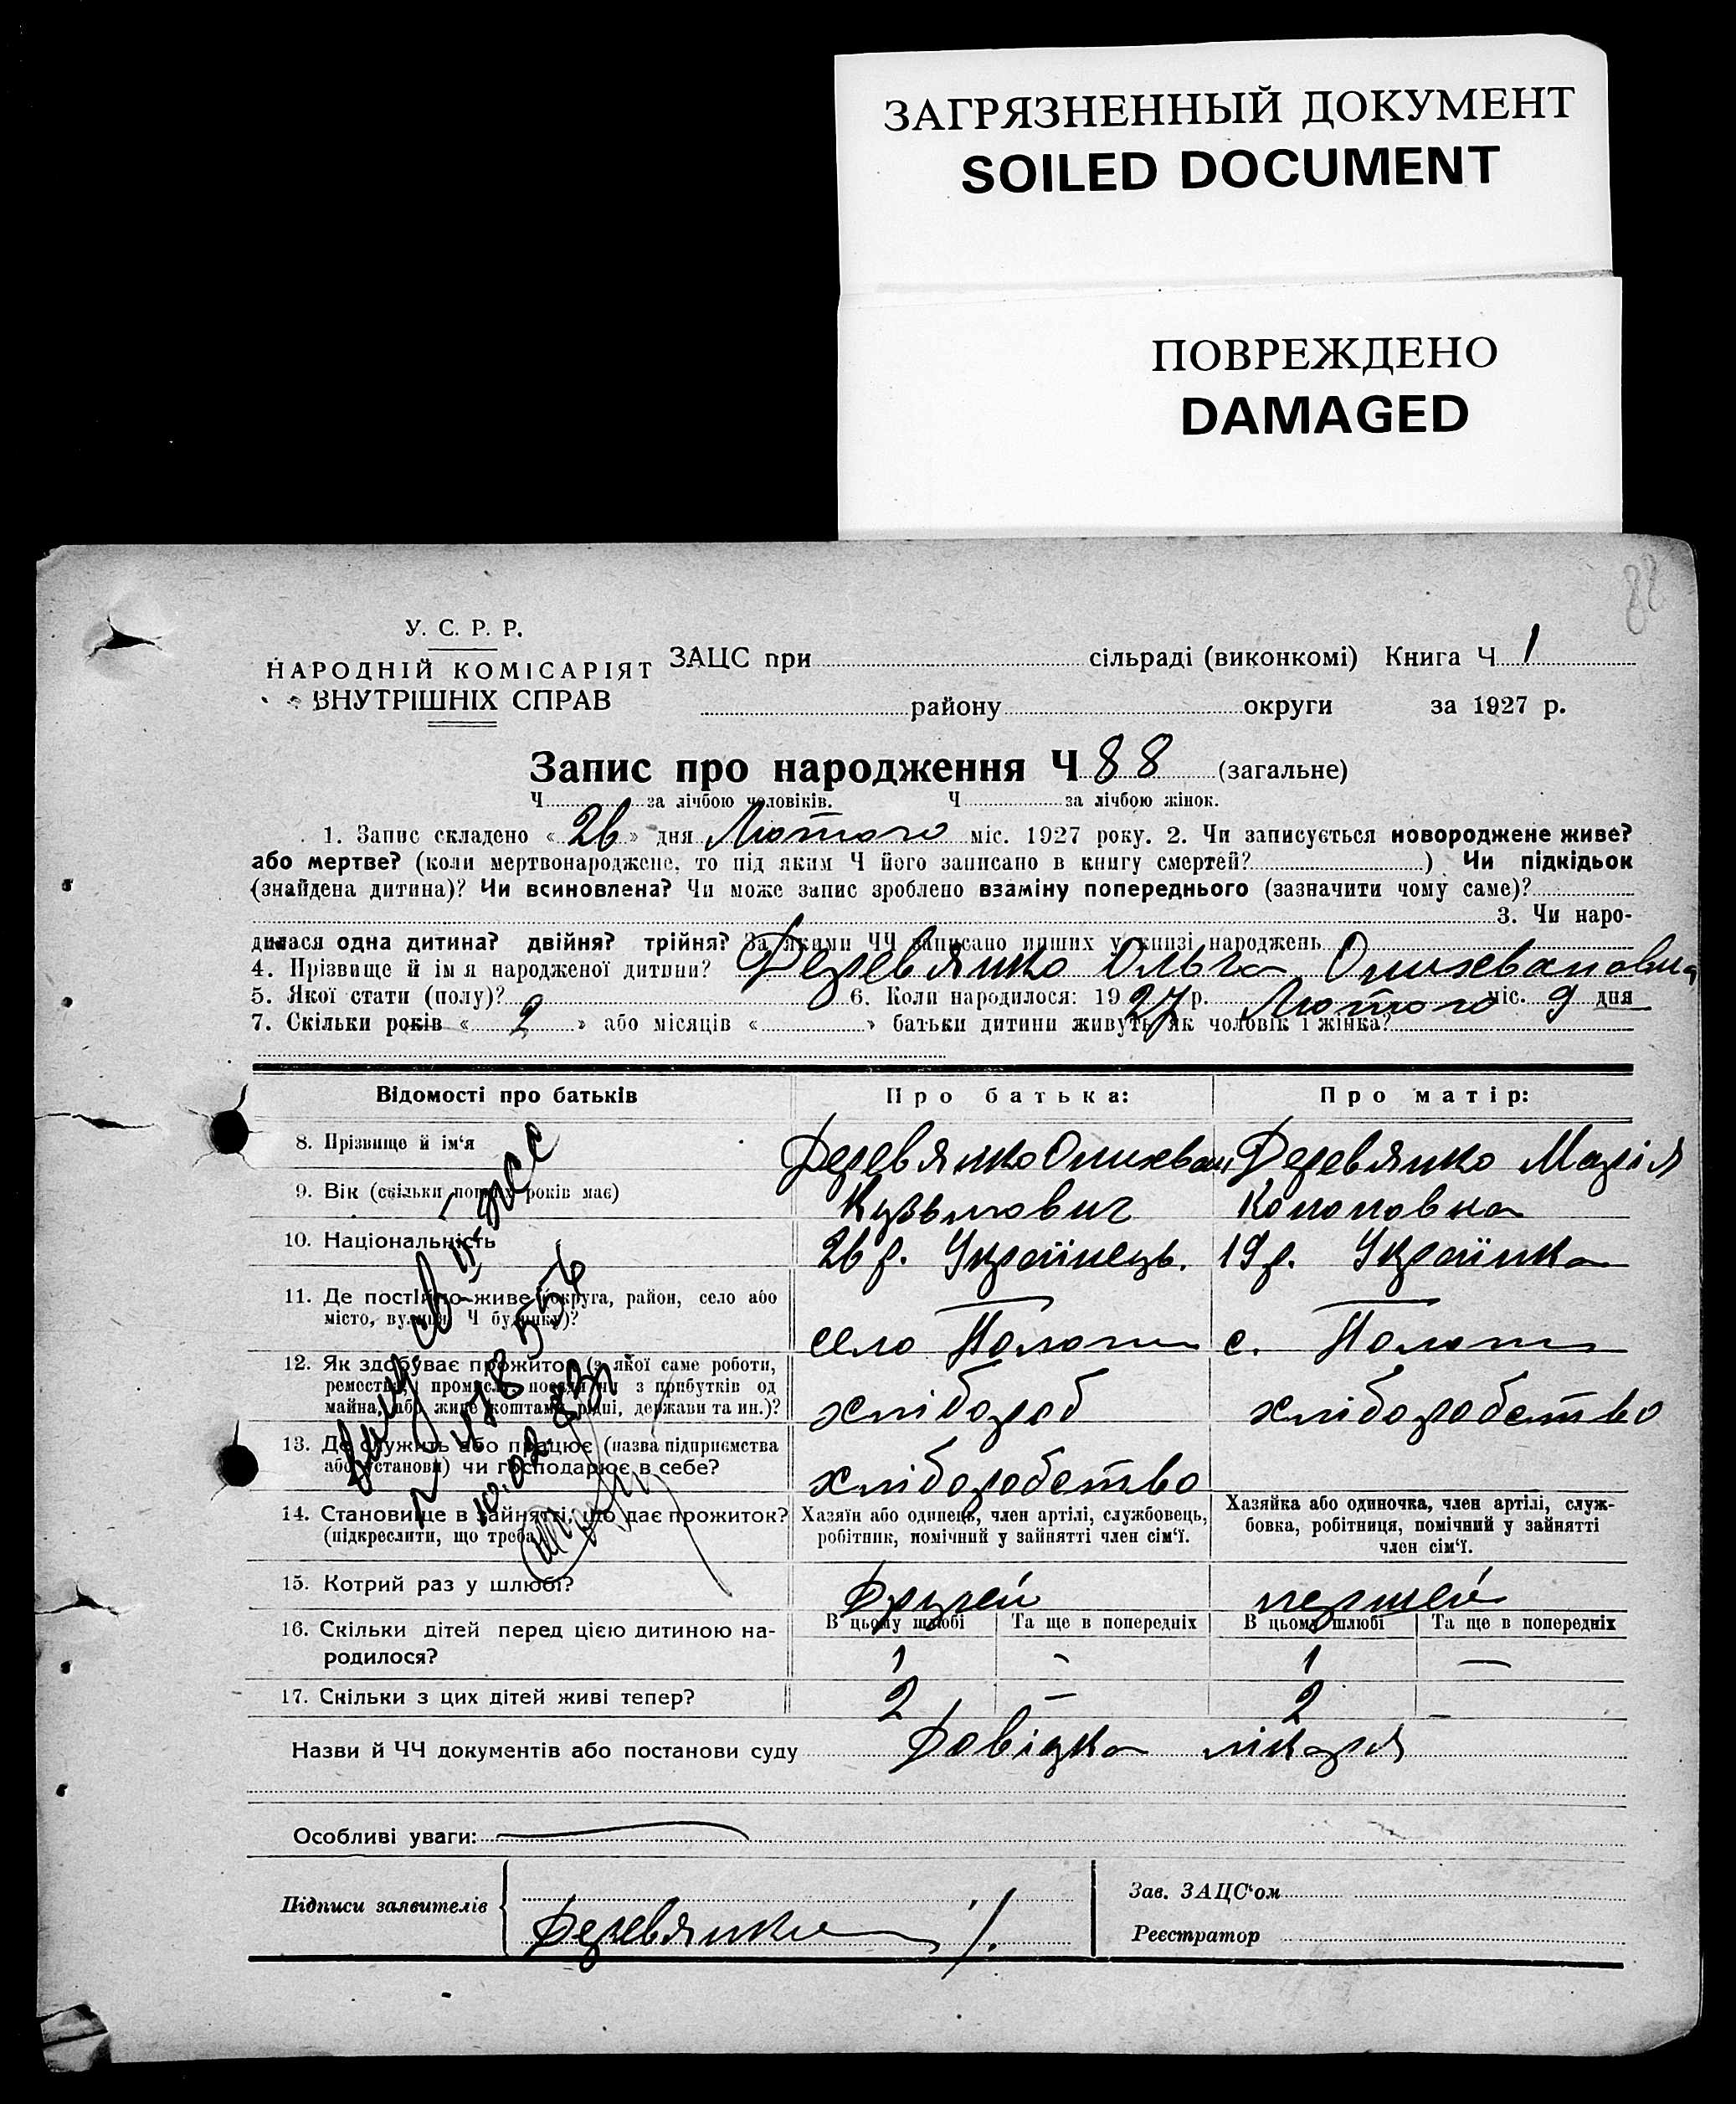 ЗАГРЯЗНЕННЫЙ ДОКУМЕНТ
SOILED DOCUMENT
ПОВРЕЖДЕНО
DAMAGED
88
У. С. Р. Р.
НАРОДНІЙ КОМІСАРІЯТ
ВНУТРІШНІХ СПРАВ
ЗАЦС при сільраді (виконкомі) Книга Ч 1
району округи за 1927 р.
Запис про народження Ч 88 (загальне)
Ч за лічбою чоловіків. Ч за лічбою жінок.
1. Запис складено « 26 » дня Лютого міс. 1927 року. 2. Чи записується новороджене живе?
або мертве? (коли мертвонароджене, то під яким Ч його записано в книгу смертей? ) Чи підкідьок
(знайдена дитина)? Чи всиновлена? Чи може запис зроблено взаміну попереднього (зазначити чому саме)?
3. Чи наро-
дилася одна дитина? двійня? трійня? За якими ЧЧ записано инших у книзі народжень
4. Прізвище й ім я народженої дитини? Деревянко Ольга
5. Якої стати (полу)? 6. Коли народилося: 1927 р. Лютого міс. 9 дня
7. Скільки років « 2 » або місяців « » батьки дитини живуть як чоловік і жінка?
Відомості про батьків Про батька: Про матір:
8. Прізвище й ім'я Деревянко Деревянко Марія
9. Вік (скільки повних років має) Кузьмович Кононовна
10. Національність 26 р. Українець. 19 р. Українка
11. Де постійно живе (округа, район, село або
місто, вулиця, Ч будинку)? село Пологи с. Пологи
12. Як здобуває прожиток (з якої саме роботи,
ремества, промислу, посади чи з прибутків од
майна, або живе коштами рідні, держави та ин.)? хлібороб хліборобство
13. Де служить або працює (назва підприємства
або установи) чи господарює в себе? хліборобство
14. Становище в зайнятті, що дає прожиток?
(підкреслити, що треба)
Хазяїн або одинець, член артілі, службовець,
робітник, помічний у зайнятті член сім'ї.
Хазяйка або одиночка, член артілі, служ-
бовка, робітниця, помічний у зайнятті
член сім'ї.
15. Котрий раз у шлюбі? Другей першей
16. Скільки дітей перед цією дитиною на-
родилося?
В цьому шлюбі Та ще в попередніх В цьому шлюбі Та ще в попередніх
1 - 1 —
17. Скільки з цих дітей живі тепер? 2 — 2 —
Назви й ЧЧ документів або постанови суду Довідка лікаря
Особливі уваги:
Підписи заявителів Деревянко
Зав. ЗАЦС'ом
Реєстратор